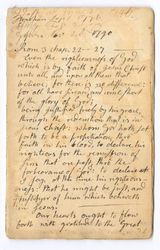 1790
Rom 3 chap. 22-27
Even the righteousness of God
which is by faith of Jesus Christ
unto all, and upon all them that
believe for there is no difference
for all have sinned, and come short
of the glory of God
being justified freely by his grace,
through the redemption that is in
Jesus Christ: whom God hath set
forth to be a propitiation, thro
faith in his blood, to declare his
righteousness for the remission of
sins that are past, thro the
forbearance of God: To declare
I say, at this time his righteous-
ness: that he might be just, and
justifyer of him which believeth
Jesus.
Our hearts ought to flow
forth with gratitude to the Great